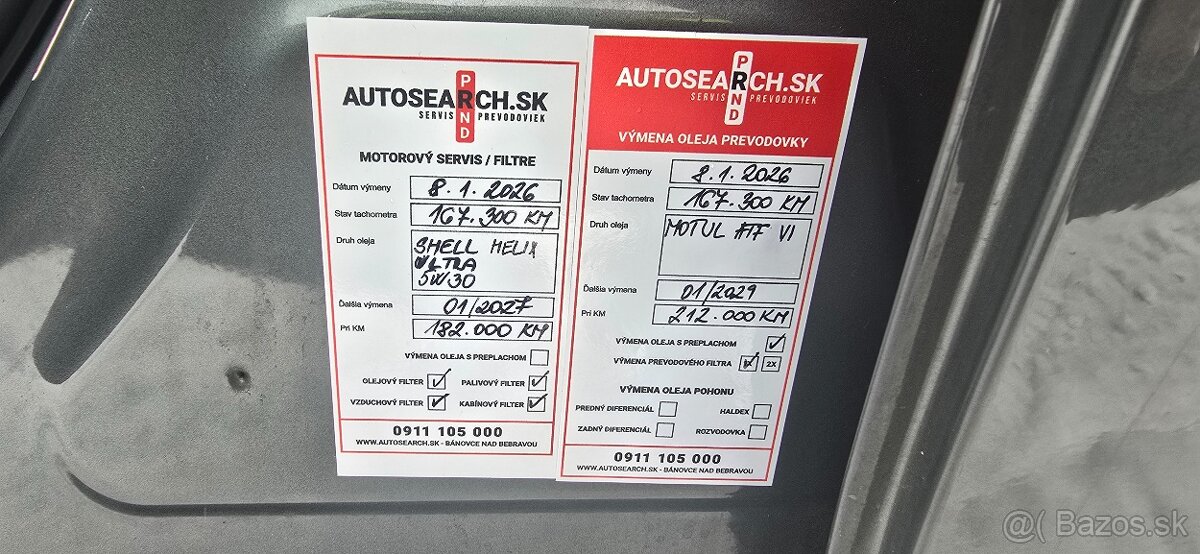 AUTOSEARCH.SK
PRND
SERVIS PREVODOVIEK
MOTOROVÝ SERVIS / FILTRE
Dátum výmeny 8.1.2026
Stav tachometra 167.300 KM
Druh oleja SHELL HELIX
ULTRA
5W30
Ďalšia výmena 01/2027
Pri KM 182.000 KM
VÝMENA OLEJA S PREPLACHOM
OLEJOVÝ FILTER PALIVOVÝ FILTER
VZDUCHOVÝ FILTER KABÍNOVÝ FILTER
0911 105 000
WWW.AUTOSEARCH.SK - BÁNOVCE NAD BEBRAVOU
AUTOSEARCH.SK
PRND
SERVIS PREVODOVIEK
VÝMENA OLEJA PREVODOVKY
Dátum výmeny 8.1.2026
Stav tachometra 167.300 KM
Druh oleja MOTUL ATF VI
Ďalšia výmena 01/2029
Pri KM 212.000 KM
VÝMENA OLEJA S PREPLACHOM
VÝMENA PREVODOVÉHO FILTRA 1X 2X
VÝMENA OLEJA POHONU
PREDNÝ DIFERENCIÁL HALDEX
ZADNÝ DIFERENCIÁL ROZVODOVKA
0911 105 000
WWW.AUTOSEARCH.SK - BÁNOVCE NAD BEBRAVOU
@( Bazos.sk